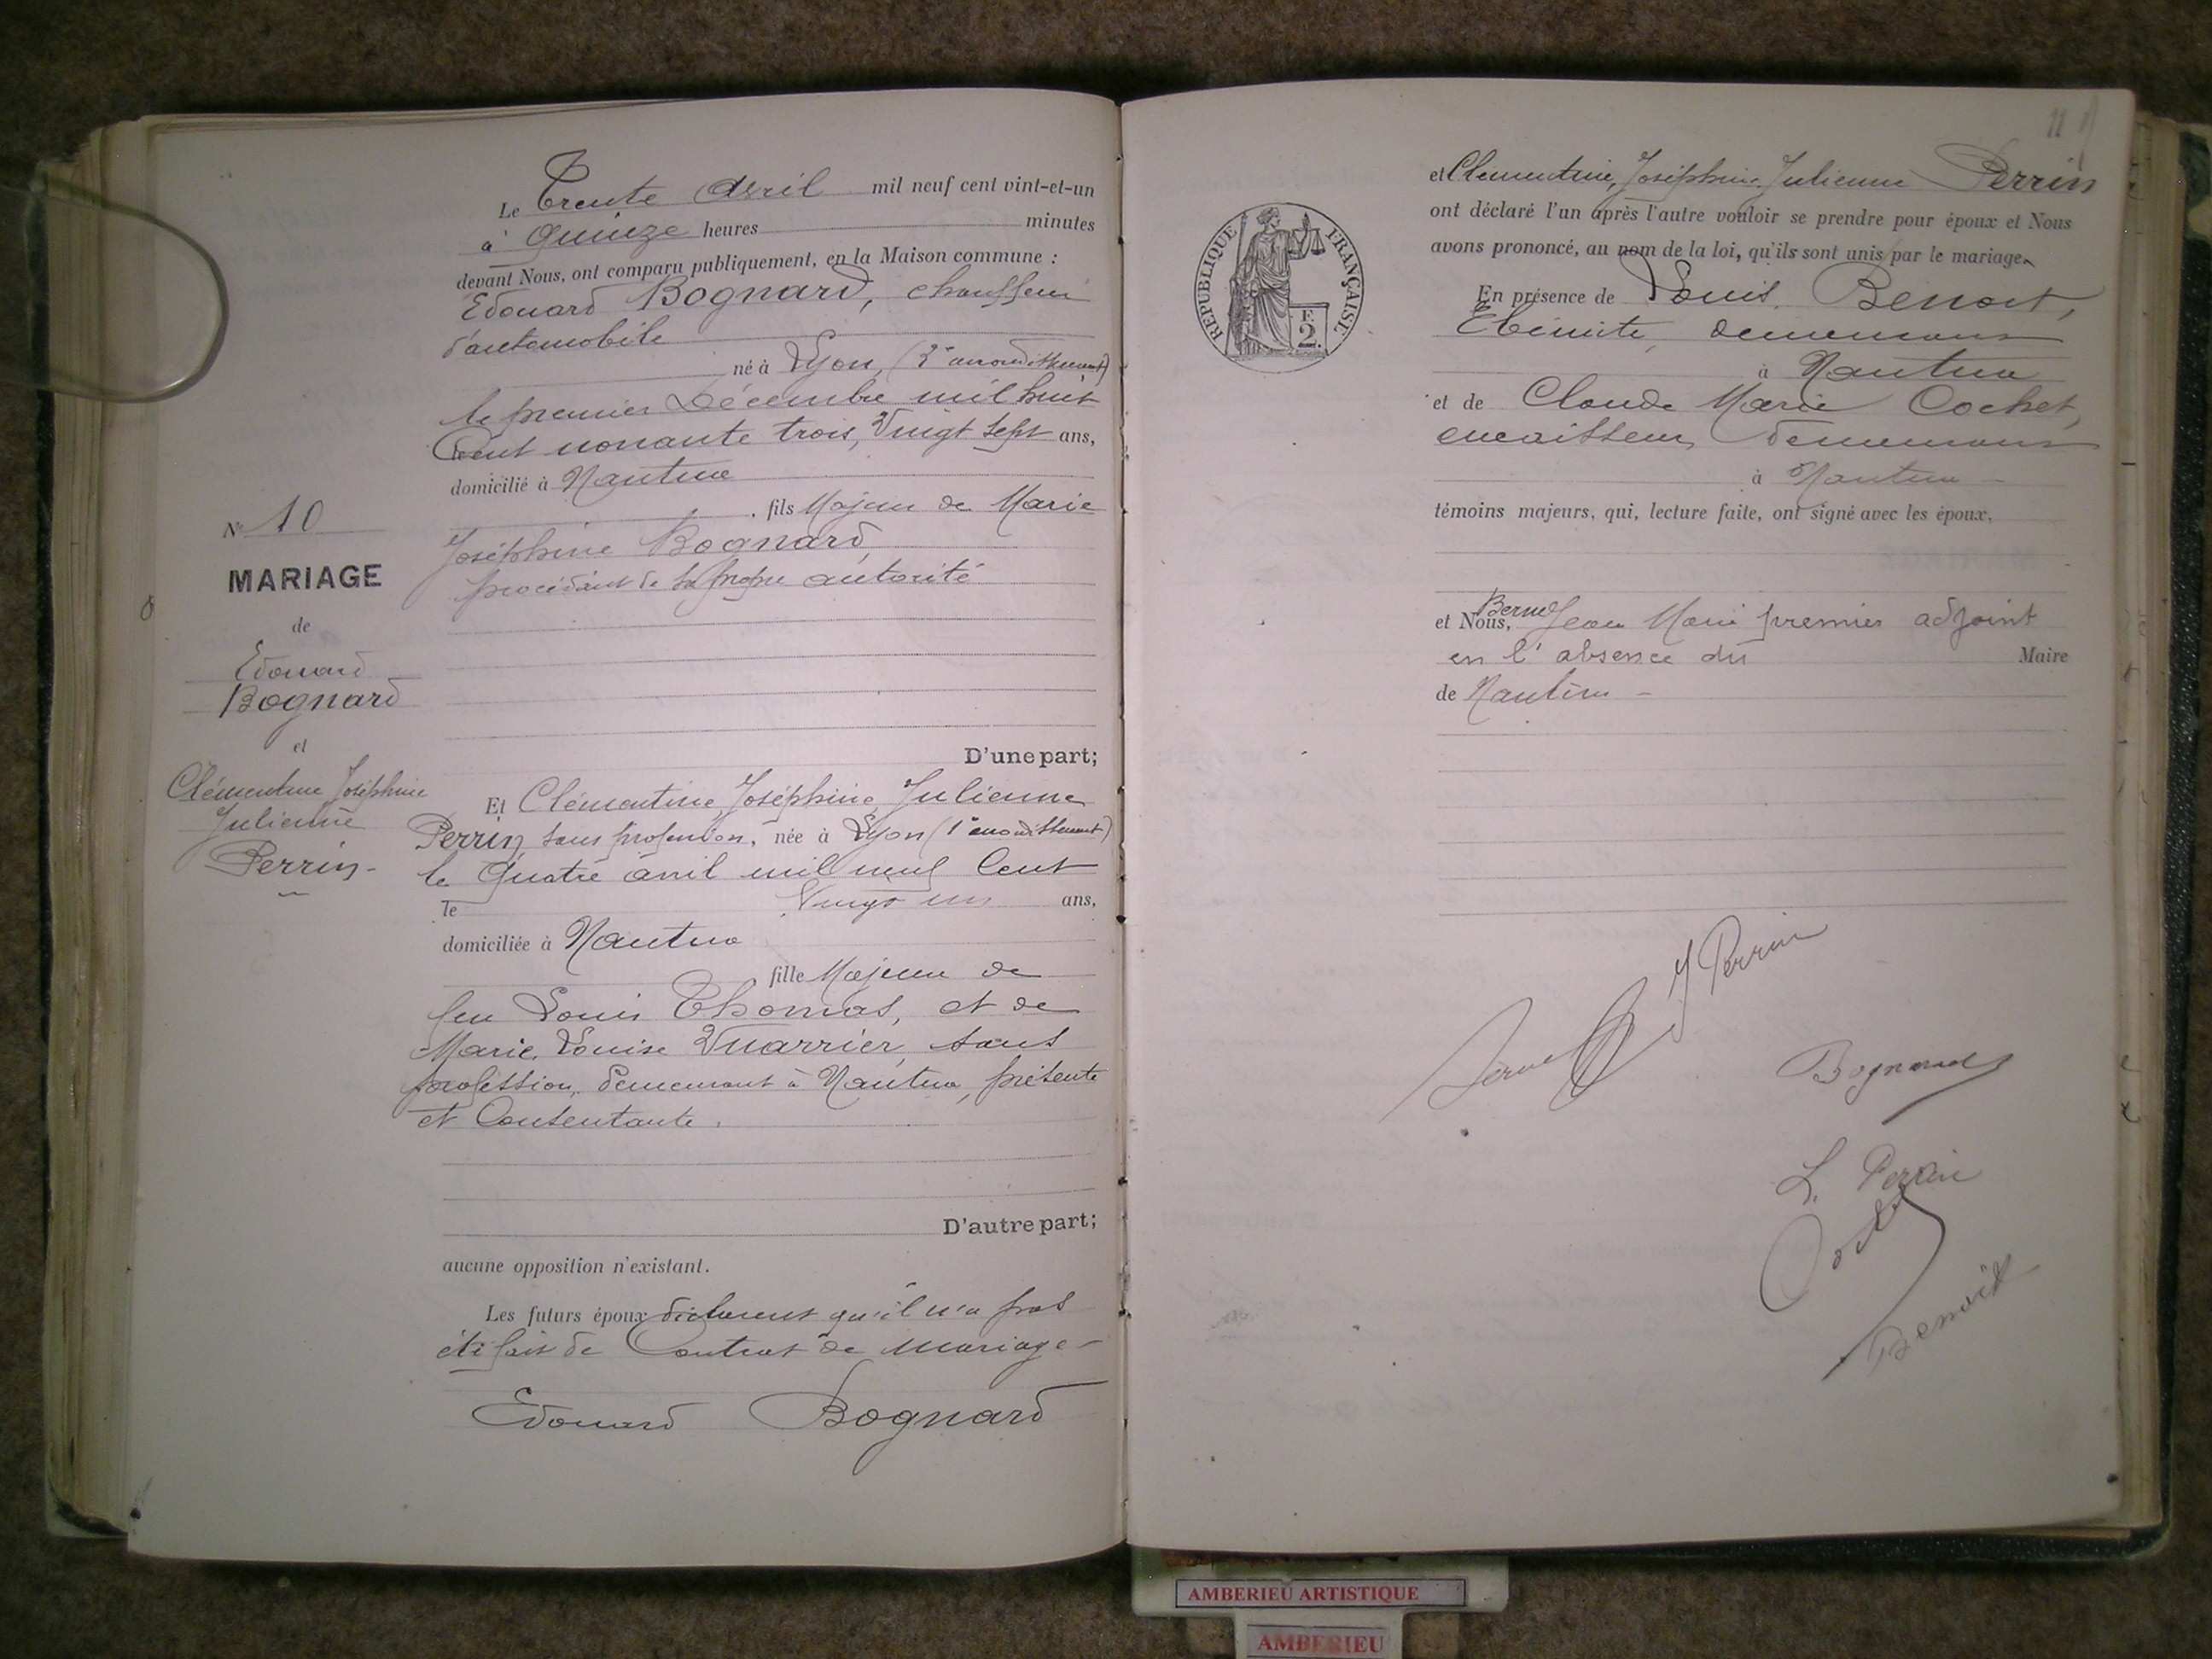 Le Trente Avril mil neuf cent vint-et-un
à Quinze heures minutes
devant Nous, ont comparu publiquement, en la Maison commune :
Edouard Bognard, chauffeur
d'automobile
né à Lyon, (2e arrondissement)
le premier Décembre mil huit
Cent nonante trois, Vingt sept ans,
domicilié à Nantua
, fils Majeur de Marie
Joséphine Bognard
procédant de sa propre autorité
N° 10
MARIAGE
de
Edouard
Bognard
et
Clémentine Joséphine
Julienne
Perrin-
D'une part;
Et Clémentine, Joséphine, Julienne
Perrin, sans profession, née à Lyon (1er arrondissement)
le Quatre avril mil neuf Cent
le Vingt un ans,
domiciliée à Nantua
, fille Majeure de
feu Louis Thomas, et de
Marie, Louise Vuarrier, sans
profession, demeurant à Nantua, présente
et Consentante.
D'autre part;
aucune opposition n'existant.
Les futurs époux déclarent qu'il n'a pas
été fait de Contrat de Mariage-
Edouard Bognard
11
et Clémentine, Joséphine, Julienne Perrin
ont déclaré l'un après l'autre vouloir se prendre pour époux et Nous
avons prononcé, au nom de la loi, qu'ils sont unis par le mariage.
REPUBLIQUE FRANÇAISE
F.
2
En présence de Louis Benoit,
Ebéniste, demeurant
à Nantua
et de Claude Marie Cochet,
encaisseur, demeurant
à Nantua-
témoins majeurs, qui, lecture faite, ont signé avec les époux,
et Nous, Berne Jean Marie premier adjoint
en l'absence du Maire
de Nantua-
J Perrin
Berne
Bognard
L. Perrin
Cochet
Benoit
AMBERIEU ARTISTIQUE
AMBERIEU